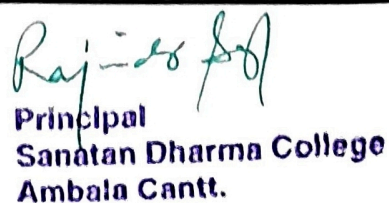 Rajinder
Principal
Sanatan Dharma College
Ambala Cantt.